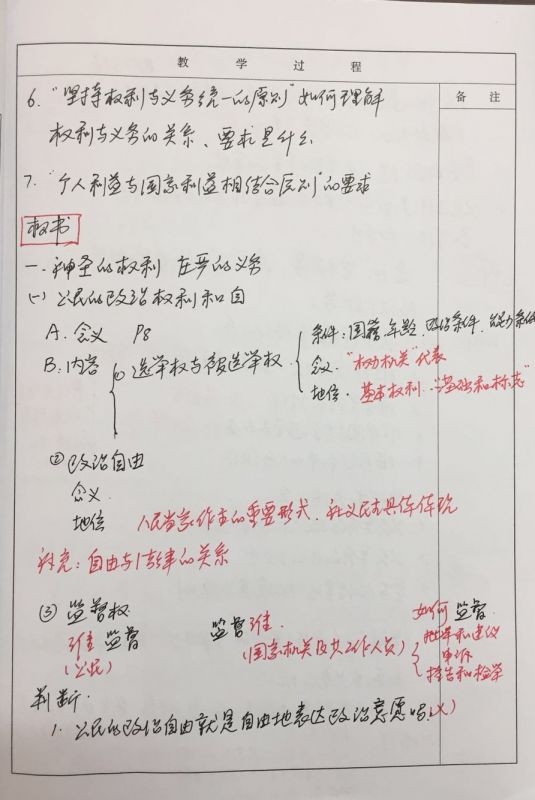 教 学 过 程
备 注
6. "坚持权利与义务统一的原则" 如何理解
权利与义务的关系、要求是什么
7. "个人利益与国家利益相结合原则"的要求
板书
一. 神圣的权利 庄严的义务
(一) 公民的政治权利和自
A. 含义 P8
B. 内容
① 选举权与被选举权
条件: 国籍、年龄、政治条件、能力条件
含义. "权力机关"代表
地位. 基本权利. "基础和标志"
② 政治自由
含义
地位 人民当家作主的重要形式. 社义民主具体体现
补充: 自由与法律的关系
③ 监督权 监督谁 如何监督.
谁监督 (国家机关及其工作人员) 批评和建议
(公民) 申诉
控告和检举
判断.
1. 公民的政治自由就是自由地表达政治意愿吗